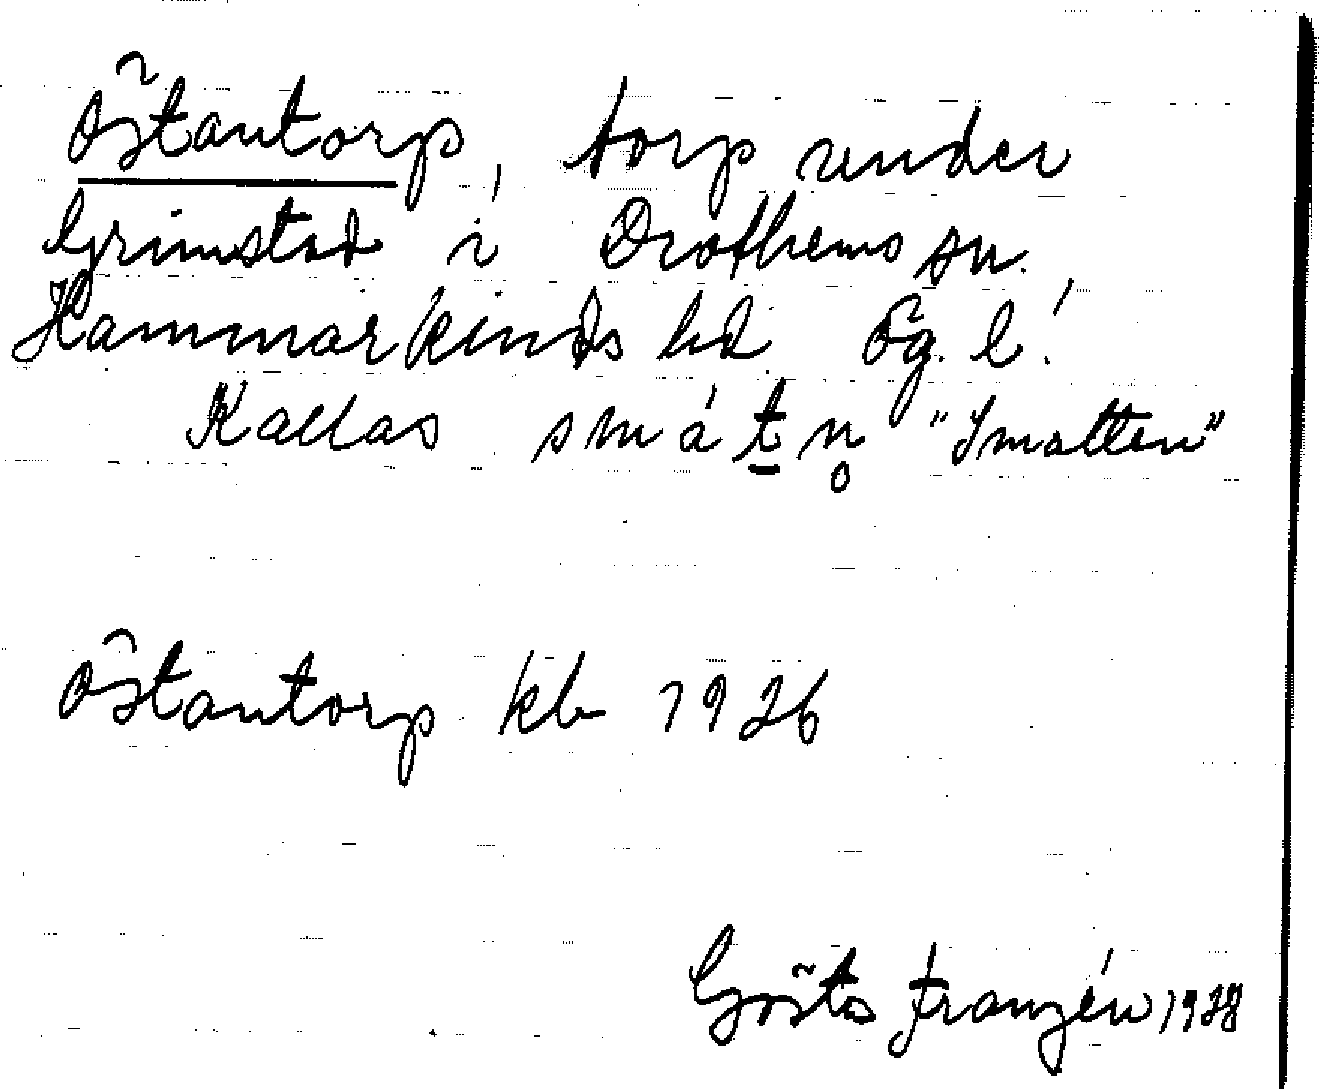 Östantorp, torp under
Grimstad i Drothems sn.
Hammarkinds hd Ög. l.
Kallas smǻt̲n̥ "Smatten"
Östantorp kb 1926
Gösta Franzén 1928